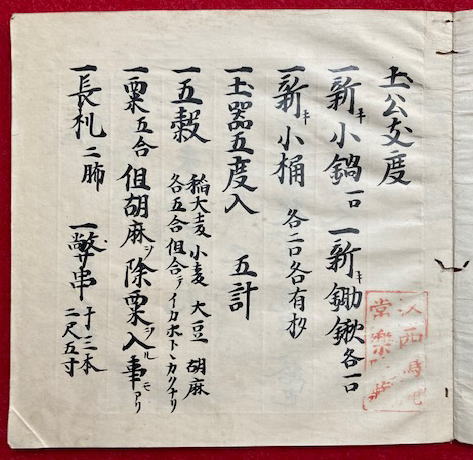 土公支度
一新キ小鍋一口 一新キ鋤鍬各一口
一新キ小桶 各二口各有杓
一土器五度入 五計
一五穀 稲大麦小麦大豆胡麻
各五合但合テイカホトトカクナリ
一粟五合但胡麻シ除粟入ルル事モアリ
一長札二胏 一幣串 于三本
二尺五寸